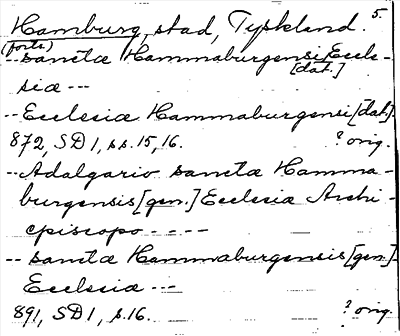 Hamburg, stad, Tyskland. 5.
(forts)
-- sanctæ Hammaburgensi Eccle-
[dat.]
siæ ---
-- Ecclesiæ Hammaburgensi [dat].
872, SD 1, s.s. 15, 16. ? orig.
-- Adalgario sanctæ Hamma-
burgensis [gen.] Ecclesiæ Archi-
episcopo - - - -
-- sanctæ Hammaburgensis [gen.]
Ecclesiæ ---
891, SD 1, s. 16. ? orig.